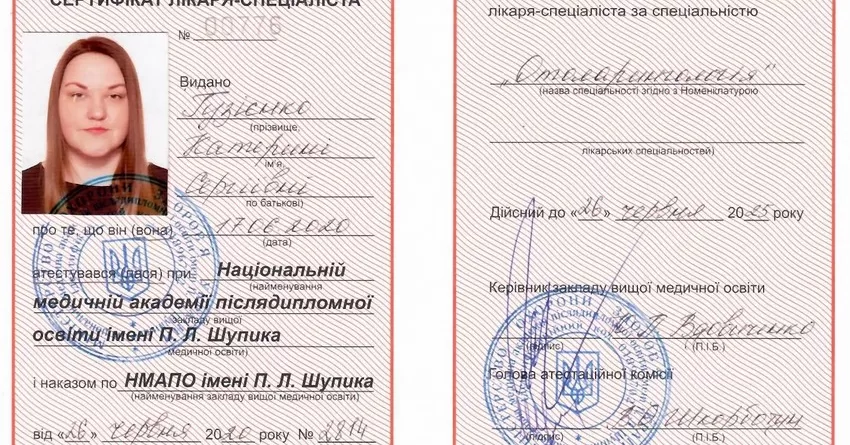 СЕРТИФІКАТ ЛІКАРЯ-СПЕЦІАЛІСТА
№ 00776
Видано
Гузієнко
(прізвище,
Катерині
ім'я,
Сергіївні
по батькові)
про те, що він (вона) 17 06 2020
(дата)
атестувався (лася) при Національній
(найменування
медичній академії післядипломної
закладу вищої
освіти імені П. Л. Шупика
медичної освіти)
і наказом по НМАПО імені П. Л. Шупика
(найменування закладу вищої медичної освіти)
від «26» червня 2020 року № 2814
лікаря-спеціаліста за спеціальністю
„Отоларингологія"
(назва спеціальності згідно з Номенклатурою
лікарських спеціальностей)
Дійсний до «26» червня 2025 року
Керівник закладу вищої медичної освіти
Вдовиченко
(підпис) і (П.І.Б.)
Голова атестаційної комісії
Шкорботун
(підпис) (П.І.Б.)